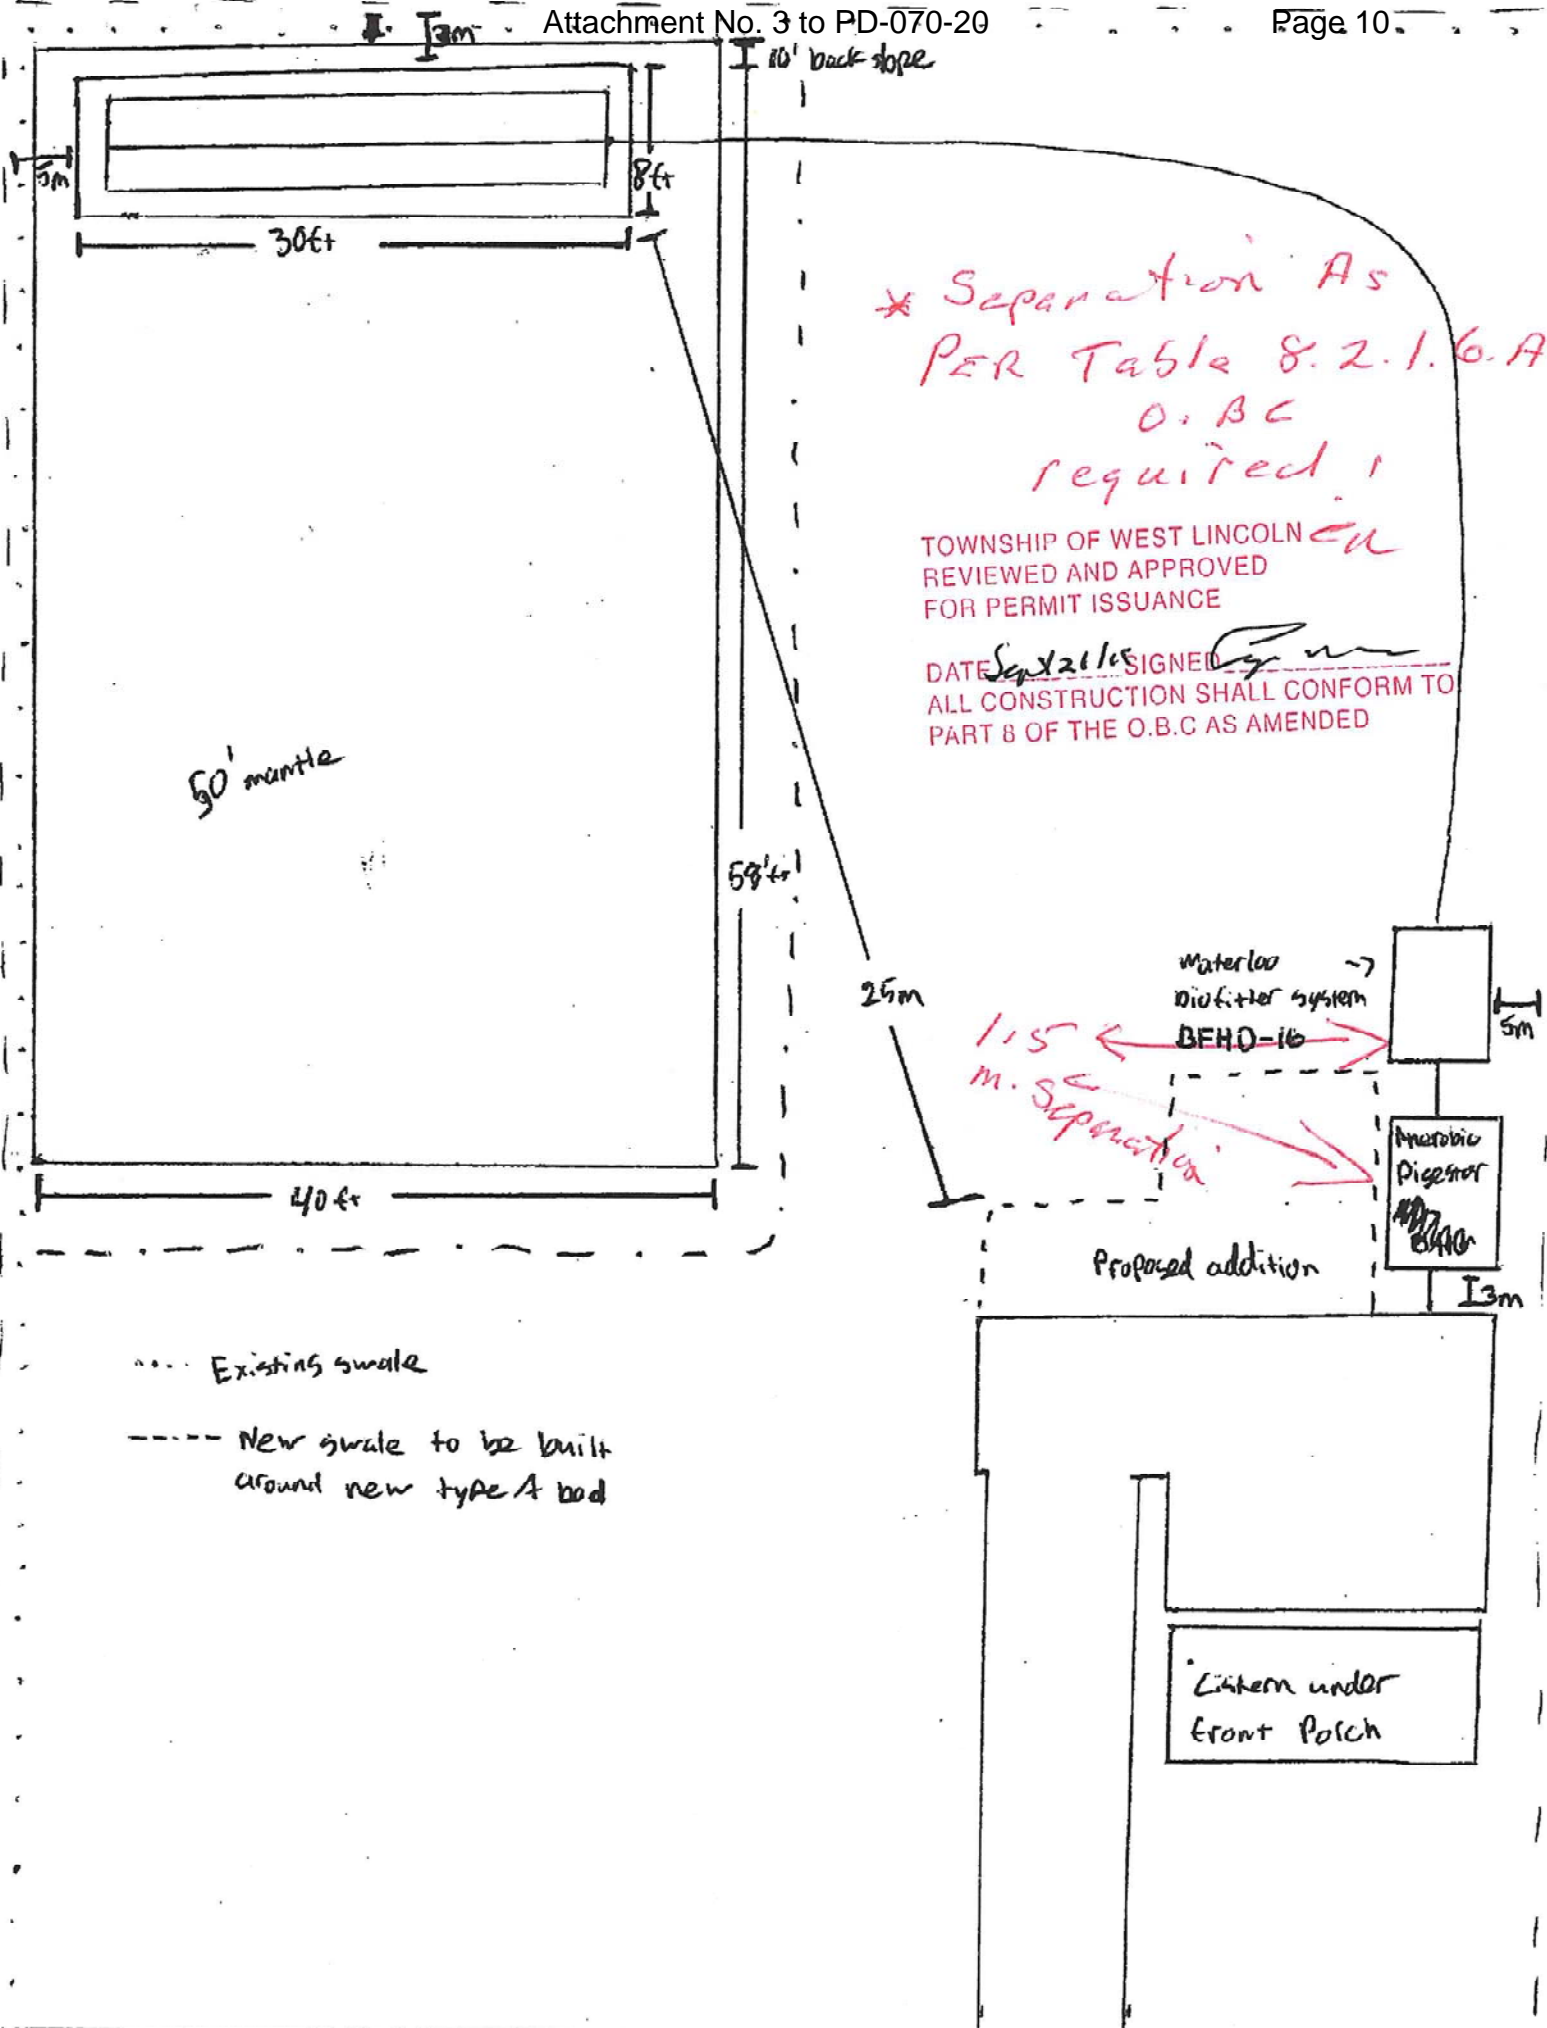 Attachment No. 3 to PD-070-20
Page 10
3m
10' back slope
5m
8ft
30ft
* Separation As
PER Table 8.2.1.6.A
O.BC
required !
TOWNSHIP OF WEST LINCOLN
REVIEWED AND APPROVED
FOR PERMIT ISSUANCE
DATE Sept 21/15 SIGNED
ALL CONSTRUCTION SHALL CONFORM TO
PART 8 OF THE O.B.C AS AMENDED
50' mantle
58'ft
25m
Waterloo ->
Biofilter system
BFHD-16
5m
1.5
m. Separation
Anerobic
Digestor
40ft
Proposed addition
3m
Existing swale
New swale to be built
around new type A bed
Cistern under
front Porch